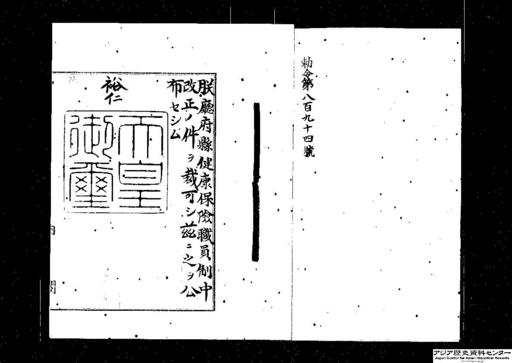 勅令第八百九十四號
朕廳府縣健康保險職員制中
改正ノ件ヲ裁可シ茲ニ之ヲ公
布セシム
裕仁
天皇
御璽
アジア歴史資料センター
Japan Center for Asian Historical Records